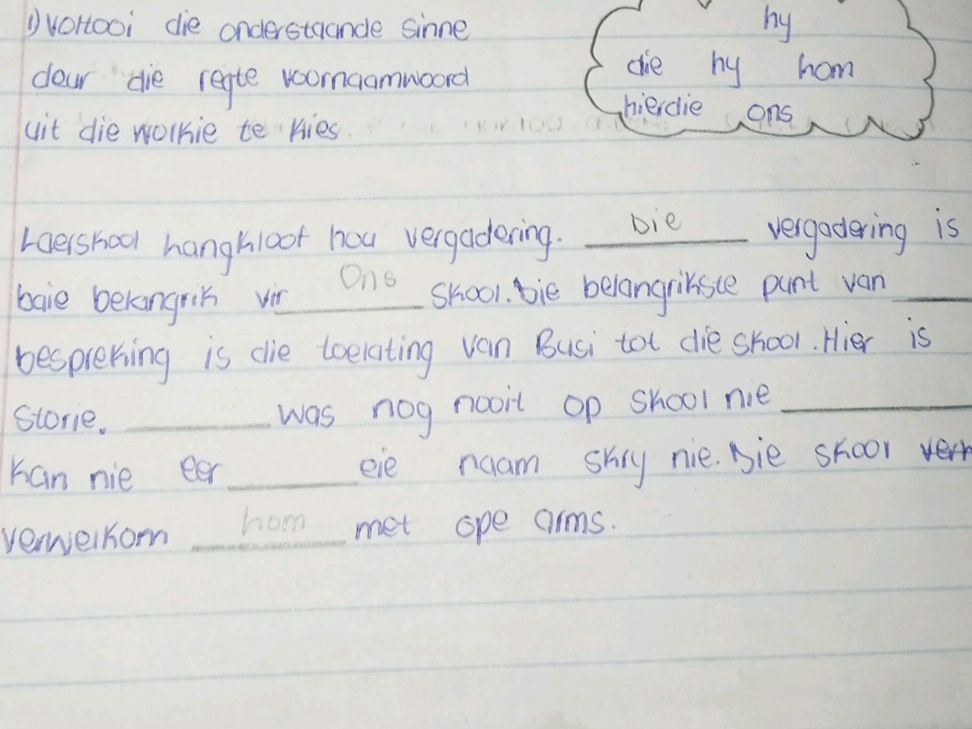 1) Voltooi die onderstaande sinne
deur die regte voornaamwoord
uit die wolkie te kies.
hy
die hy hom
hierdie ons
Laerskool hangkloof hou vergadering. Die vergadering is
baie belangrik vir Ons skool. Die belangrikste punt van
bespreking is die toelating van Busi tot die skool. Hier is
storie. was nog nooit op skool nie
kan nie eer eie naam skry nie. Die skool verw
verwelkom hom met ope arms.